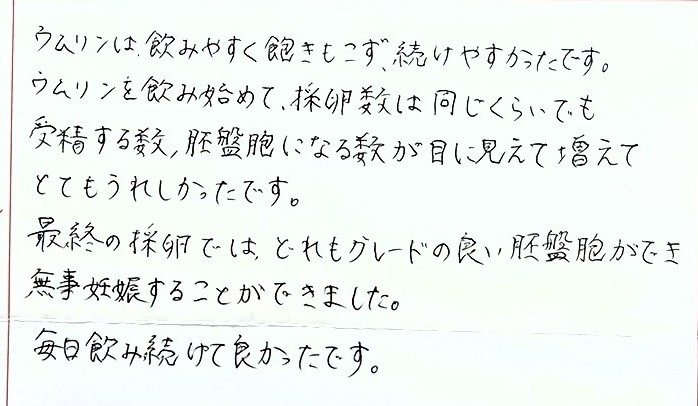 ウムリンは、飲みやすく飽きもこず、続けやすかったです。
ウムリンを飲み始めて、採卵数は同じくらいでも
受精する数、胚盤胞になる数が目に見えて増えて
とてもうれしかったです。
最終の採卵では、どれもグレードの良い胚盤胞ができ
無事妊娠することができました。
毎日飲み続けて良かったです。